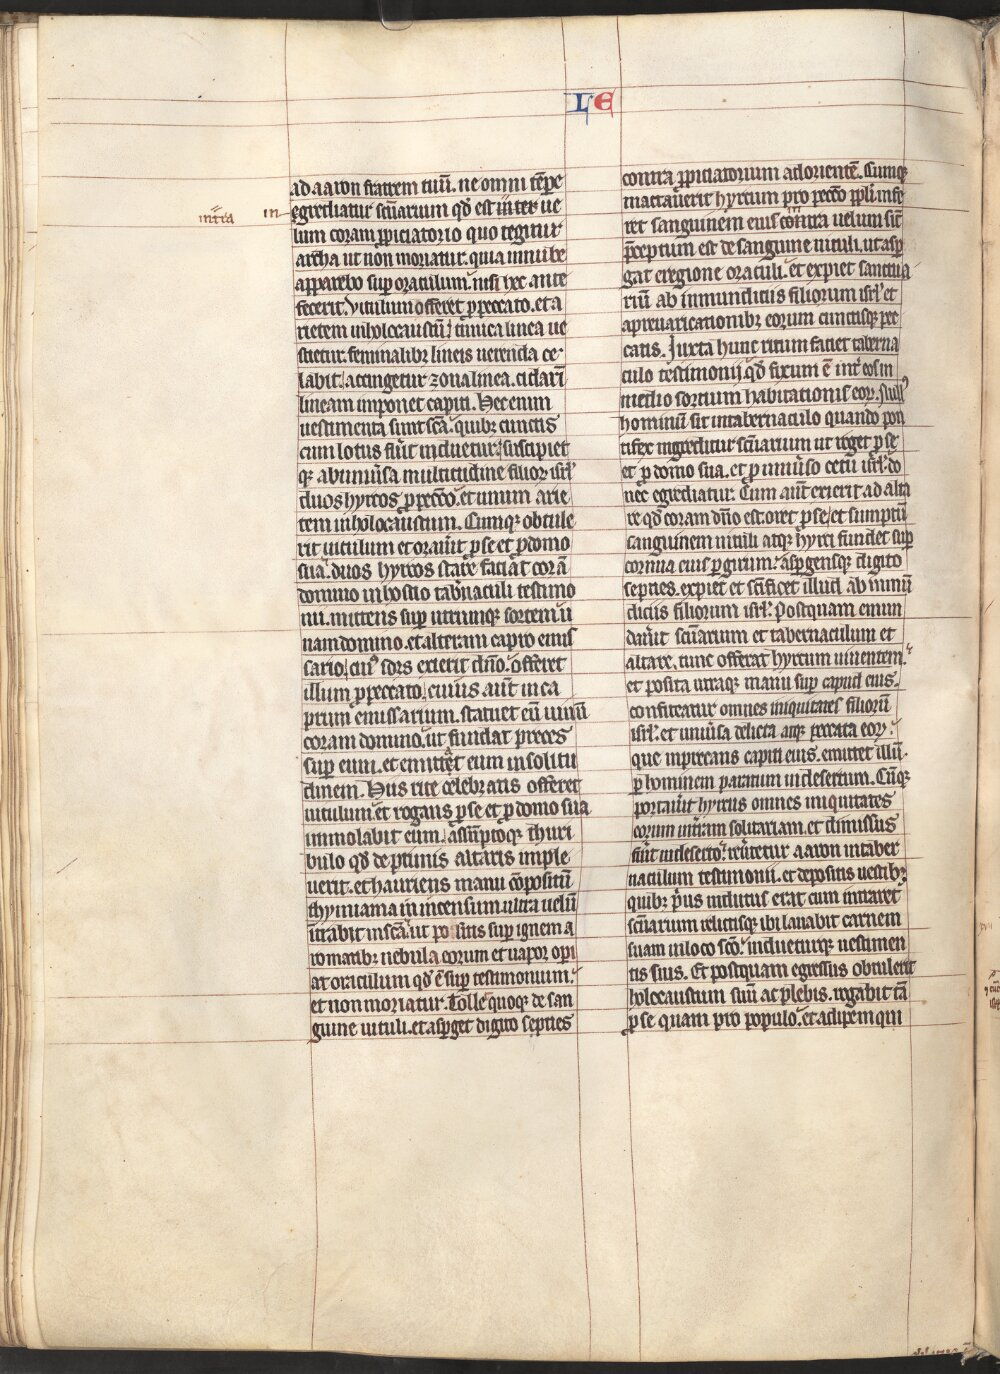 LE
ad aaron fratrem tuū. ne omni tēpe
intra in
egrediatur scūarium qd̄ est inter ue
lum coram ꝓpiciatorio quo tegitur
archa ut non moriatur. quia in nube
apparebo suꝑ oraculum. nisi hec ante
fecerit. Vitulum offeret ꝓ peccato. et a
rietem in holocaustū. tunica linea ue
stietur. feminalibꝫ lineis uerenda ce
labit. accingetur zona linea. cidarī
lineam imponet capiti. Hec enim
uestimenta sunt scā. quibꝫ cunctis
cum lotus fuīt induetur. suscipiet
qꝫ ab uniūsa multitudine filioꝝ isrl̄
duos hyrcos ꝓ peccō. et unum arie
tem in holocaustum. Cumqꝫ obtule
rit uitulum et orauīt ꝓ se et ꝓ domo
sua. duos hyrcos stare faciat corā
domino in hostio tab̄naculi testimo
nii. mittens suꝑ utrumqꝫ sortem u
nam domino. et alteram capro emis
sario. cuiꝰ sors exierit dn̄o. offeret
illum ꝓ peccato. cuius aūt in ca
prum emissarium. statuet eū uiuū
coram domino. ut fundat preces
suꝑ eum. et emittet eum in solitu
dinem. Hiis rite celebratis offeret
uitulum. et rogans ꝓ se et ꝓ domo sua
immolabit eum. assūptoqꝫ thuri
bulo qd̄ de prunis altaris imple
uerit. et hauriens manu cōpositū
thymiama in incensum. ultra uelū
intrabit in scā. ut positis suꝑ ignem a
romatibꝫ nebula eorum et uapor opi
at oraculum qd̄ ē suꝑ testimonium.
et non moriatur. Tollet quoqꝫ de san
guine uituli. et asꝑget digito septies
contra ꝓpiciatorium ad orientē. Cumqꝫ
mactauerit hyrcum pro peccō pp̄li. infe
ret sanguinem eius contra uelum sic̄
p̄ceptum est de sanguine uituli. ut asꝑ
gat e regione oraculi. et expiet sanctua
riū ab inmundiciis filiorum isrl̄ et
a preuaricationibꝫ eorum cunctisqꝫ pec
catis. Iuxta hunc ritum faciet taberna
culo testimonii qd̄ fixum ē int̄ eos in
medio sortium habitationis eoꝝ. nullꝰ
hominū sit in tabernaculo quando pon
tifex ingreditur scūarium ut roget ꝓ se
et ꝓ domo sua. et ꝓ uniūso cetu isrl̄. do
nec egrediatur. Cum aūt exierit ad alta
re qd̄ coram dn̄o est. oret ꝓ se. et sumptū
sanguinem uituli atqꝫ hyrci fundet suꝑ
cornua eius ꝑ girum. asꝑgensqꝫ digito
septies. expiet et scīficet illud ab inmū
diciis filiorum isrl̄. Postquam emun
dauīt scūarium et tabernaculum et
altare. tunc offerat hyrcum uiuentem.
et posita utraqꝫ manu suꝑ capud eius.
confiteatur omnes iniquitates filiorū
isrl̄. et uniūsa delicta atqꝫ peccata eoꝝ.
que imprecans capiti eius. emittet illū
ꝑ hominem paratum in desertum. Cūqꝫ
portauīt hyrcus omnes iniquitates
eorum in tr̄am solitariam. et dimissus
fuīt in deserto. reūtetur aaron in taber
naculum testimonii. et depositis uestibꝫ
quibꝫ p̄us indutus erat cum intraret
scūarium. relictisqꝫ ibi lauabit carnem
suam in loco scō. indueturqꝫ uestimen
tis suis. Et postquam egressus obtulerit
holocaustum suū ac plebis. rogabit tā
ꝓ se quam pro populo. et adipem qui